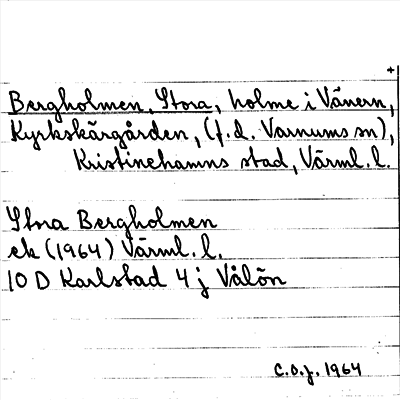 Bergholmen, Stora, holme i Vänern,
Kyrkskärgården, (f.d. Varnums sn),
Kristinehamns stad, Värml. l.
Stora Bergholmen
ek (1964) Värml. l.
10 D Karlstad 4 j Vålön
C.O.J. 1964